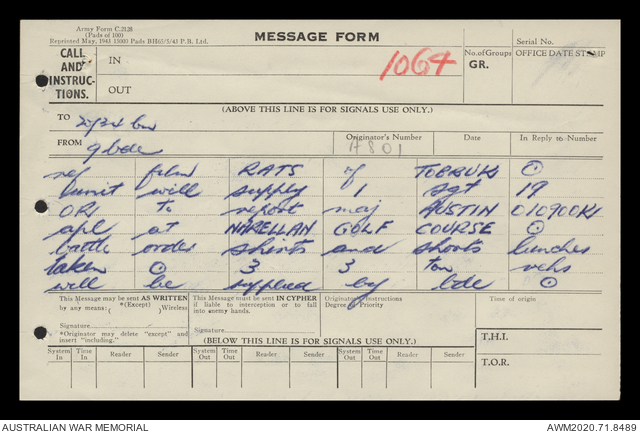 Army Form C.2128
(Pads of 100)
Reprinted May, 1943 15000 Pads BH65/5/43 P.B. Ltd.
MESSAGE FORM
Serial No.
CALL AND INSTRUC-TIONS.
IN
1064
No. of Groups GR.
OFFICE DATE STAMP
OUT
(ABOVE THIS LINE IS FOR SIGNALS USE ONLY.)
TO 2/34 bn
FROM 9 bde
Originator's Number A801
Date
In Reply to Number
ref film RATS of TOBRUK ⊙
unit will supply 1 sgt 19
ORs to report maj AUSTIN 010900K
apl at NARELLAN GOLF COURSE ⊙
battle order shirts and shorts lunches
taken ⊙ 3 3 ton vehs
will be supplied by bde ⊙
This Message may be sent AS WRITTEN by any means. (*(Except) Wireless)
Signature
*Originator may delete "except" and insert "including."
This Message must be sent IN CYPHER if liable to interception or to fall into enemy hands.
Signature
Originator's Instructions
Degree of Priority
Time of origin
(BELOW THIS LINE IS FOR SIGNALS USE ONLY.)
T.H.I.
T.O.R.
System In
Time In
Reader
Sender
System Out
Time Out
Reader
Sender
System Out
Time Out
Reader
Sender
AUSTRALIAN WAR MEMORIAL
AWM2020.71.8489